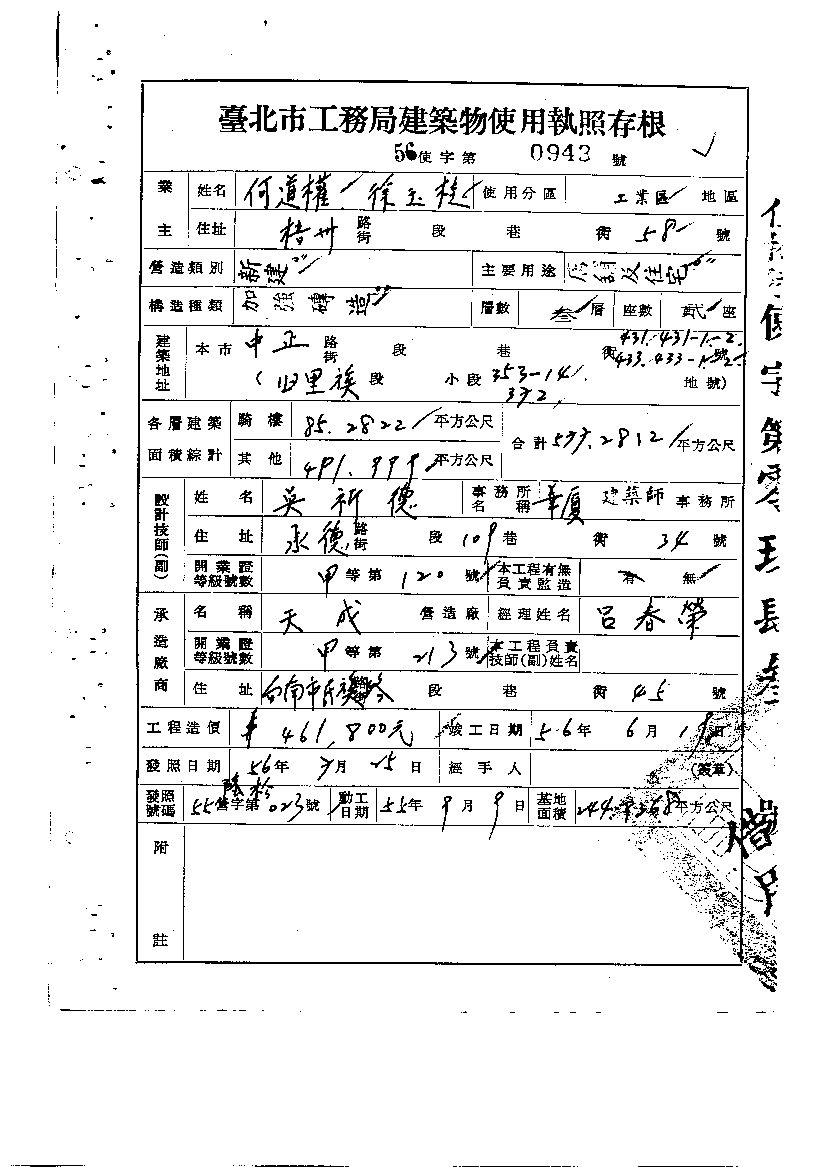 臺北市工務局建築物使用執照存根
56使字第 0943 號
業主 姓名 何道權 徐玉桂 使用分區 工業區 地區
住址 梧州 路街 段 巷 衖 58 號
營造類別 新建 主要用途 店舖及住宅
構造種類 加強磚造 層數 叁層 座數 貳座
建築地址 本市 中正 路街 段 巷 衖 431.431-1.-2. 433.433-1.-2 號
(旧里族段 小段 353-14 372, 地號)
各層建築面積綜計 騎樓 85.2822 平方公尺 合計 577.2812 平方公尺
其他 491.999 平方公尺
設計技師(副) 姓名 吳祈德 事務所名稱 華廈 建築師 事務所
住址 永德 路街 段 109 巷 衖 34 號
開業證等級號數 甲等第 120 號 本工程有無負責監造 有 無
承造廠商 名稱 天成 營造廠 經理姓名 呂春榮
開業證等級號數 甲等第 213 號 本工程負責技師(副)姓名
住址 台南市民族路 段 巷 衖 45 號
工程造價 461,800元 竣工日期 56年 6月 19日
發照日期 56年 7月 25日 經手人 (簽章)
發照號碼 55營字第023號 動工日期 55年 9月 9日 基地面積 平方公尺
附註
使字第零玉長叁